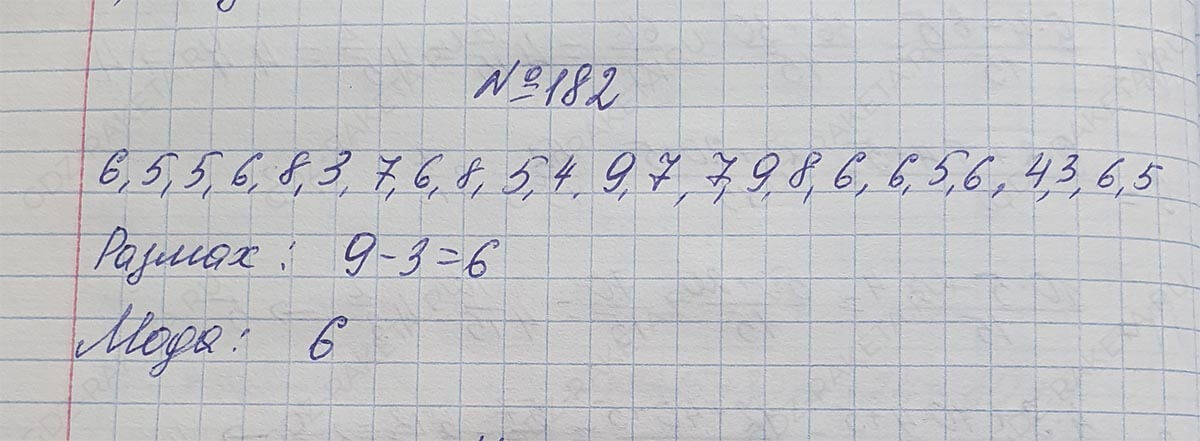 №182
6, 5, 5, 6, 8, 3, 7, 6, 8, 5, 4, 9, 7, 7, 9, 8, 6, 6, 5, 6, 4, 3, 6, 5
Размах: 9-3=6
Мода: 6